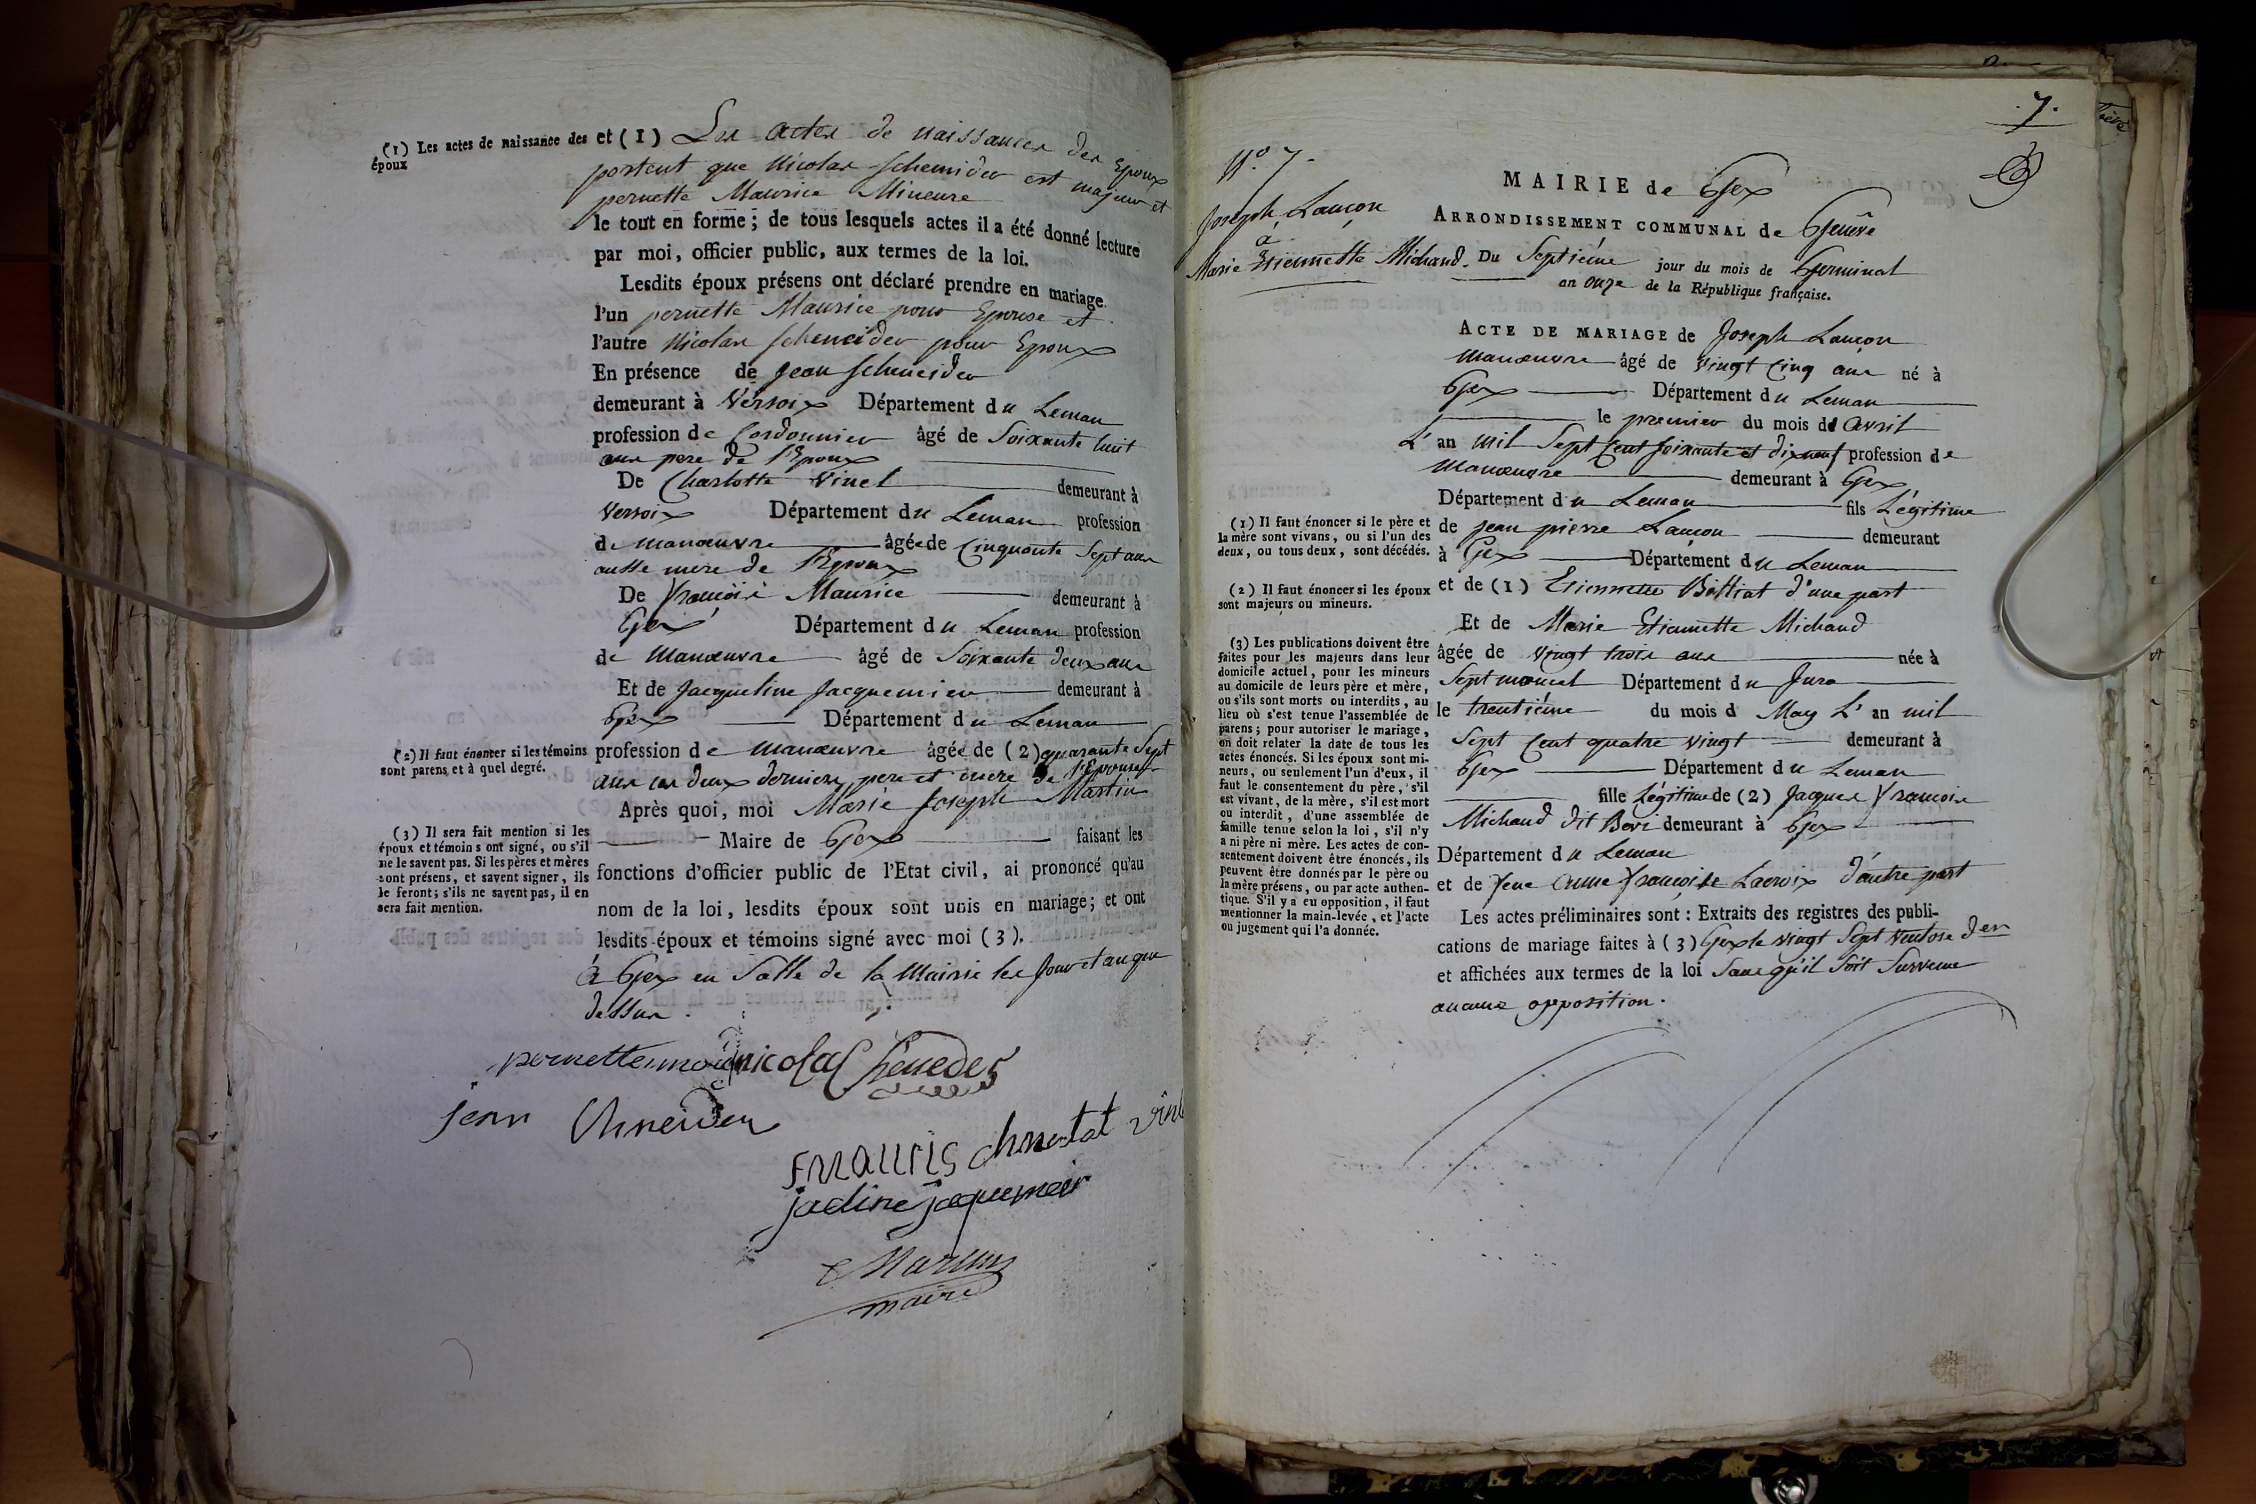 (1) Les actes de naissance des
époux
et (1) Les actes de naissances des Epoux
portent que Nicolas Schemider est majeur et
pernette Maurice Mineure
le tout en forme ; de tous lesquels actes il a été donné lecture
par moi, officier public, aux termes de la loi.
Lesdits époux présens ont déclaré prendre en mariage
l'un pernette Maurice pour Epouse et
l'autre Nicolas scheneider pour Epoux
En présence de Jean Schneider
demeurant à Versoix Département du Leman
profession de Cordonnier âgé de Soixante huit
ans pere de l'Epoux
De Charlotte Vinel demeurant à
Versoix Département du Leman profession
de manœuvre âgée de Cinquante Sept ans
mere de l'Epoux
De françois Maurice demeurant à
Gex Département du Leman profession
de Manœuvre âgé de Soixante deux ans
Et de Jacqueline Jacquemier demeurant à
Gex Département du Leman
(2) Il faut énoncer si les témoins
sont parens et à quel degré.
profession de manœuvre âgée de (2) quarante Sept
ans ces deux derniers pere et mere de l'Epouse
Après quoi, moi Marie Joseph Martin
Maire de Gex faisant les
(3) Il sera fait mention si les
époux et témoins ont signé, ou s'il
ne le savent pas. Si les pères et mères
sont présens, et savent signer, ils
le feront ; s'ils ne savent pas, il en
sera fait mention.
fonctions d'officier public de l'Etat civil, ai prononcé qu'au
nom de la loi, lesdits époux sont unis en mariage ; et ont
lesdits époux et témoins signé avec moi (3).
à Gex en Salle de la Mairie les Jour et an que
dessus.
pernette nicolas Cheneder
jean Chneider
fmauris
jacline jaquemeir
Martin
maire
.7.
N.° 7.
Joseph Lançon
à
Marie Etiennette Michaud.
MAIRIE de Gex
ARRONDISSEMENT COMMUNAL de Genêve
Du Septiéme jour du mois de Germinal
an onze de la République française.
ACTE DE MARIAGE de Joseph Lançon
manœuvre âgé de vingt Cinq ans né à
Gex Département du Leman
le premier du mois d'avril
L'an mil Sept Cent soixante et dixneuf profession de
manœuvre demeurant à Gex
Département du Leman fils Légitime
(1) Il faut énoncer si le père et
la mère sont vivans, ou si l'un des
deux, ou tous deux, sont décédés.
de jean pierre Lançon demeurant
à Gex Département du Leman
(2) Il faut énoncer si les époux
sont majeurs ou mineurs.
et de (1) Etiennette Battiat d'une part
Et de Marie Etiennette Michaud
(3) Les publications doivent être
faites pour les majeurs dans leur
domicile actuel, pour les mineurs
au domicile de leurs père et mère,
ou s'ils sont morts ou interdits, au
lieu où s'est tenue l'assemblée de
parens ; pour autoriser le mariage,
on doit relater la date de tous les
actes énoncés. Si les époux sont mi-
neurs, ou seulement l'un d'eux, il
faut le consentement du père, s'il
est vivant, de la mère, s'il est mort
ou interdit, d'une assemblée de
famille tenue selon la loi, s'il n'y
a ni père ni mère. Les actes de con-
sentement doivent être énoncés, ils
peuvent être donnés par le père ou
la mère présens, ou par acte authen-
tique. S'il y a eu opposition, il faut
mentionner la main-levée, et l'acte
ou jugement qui l'a donnée.
âgée de vingt trois ans née à
Septmoncel Département du Jura
le trentiéme du mois d May L'an mil
Sept Cent quatre vingt demeurant à
Gex Département du Leman
fille Légitime de (2) Jacques françois
Michaud dit Bovi demeurant à Gex
Département du Leman
et de feue Anne françoise Lacroix d'autre part
Les actes préliminaires sont : Extraits des registres des publi-
cations de mariage faites à (3) Gex le vingt Sept Ventose der
et affichées aux termes de la loi Sans qu'il soit Survenue
aucune opposition.